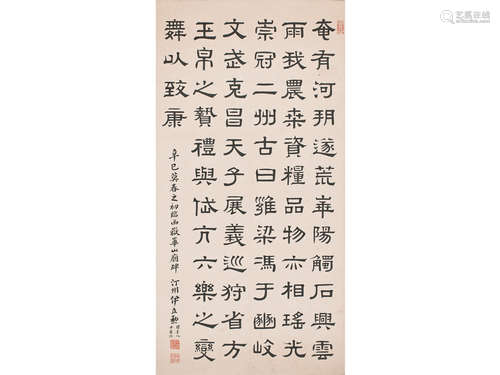 奄有河朔遂荒崋陽觸石興雲
雨我農桒資糧品物亦相瑤光
崇冠二州古曰雍梁馮于豳岐
文武克昌天子展義巡狩省方
玉帛之贄禮與岱亢六樂之變
舞以致康
辛巳莫春之初臨西嶽華山廟碑 汀州伊立勳
艺狐在线